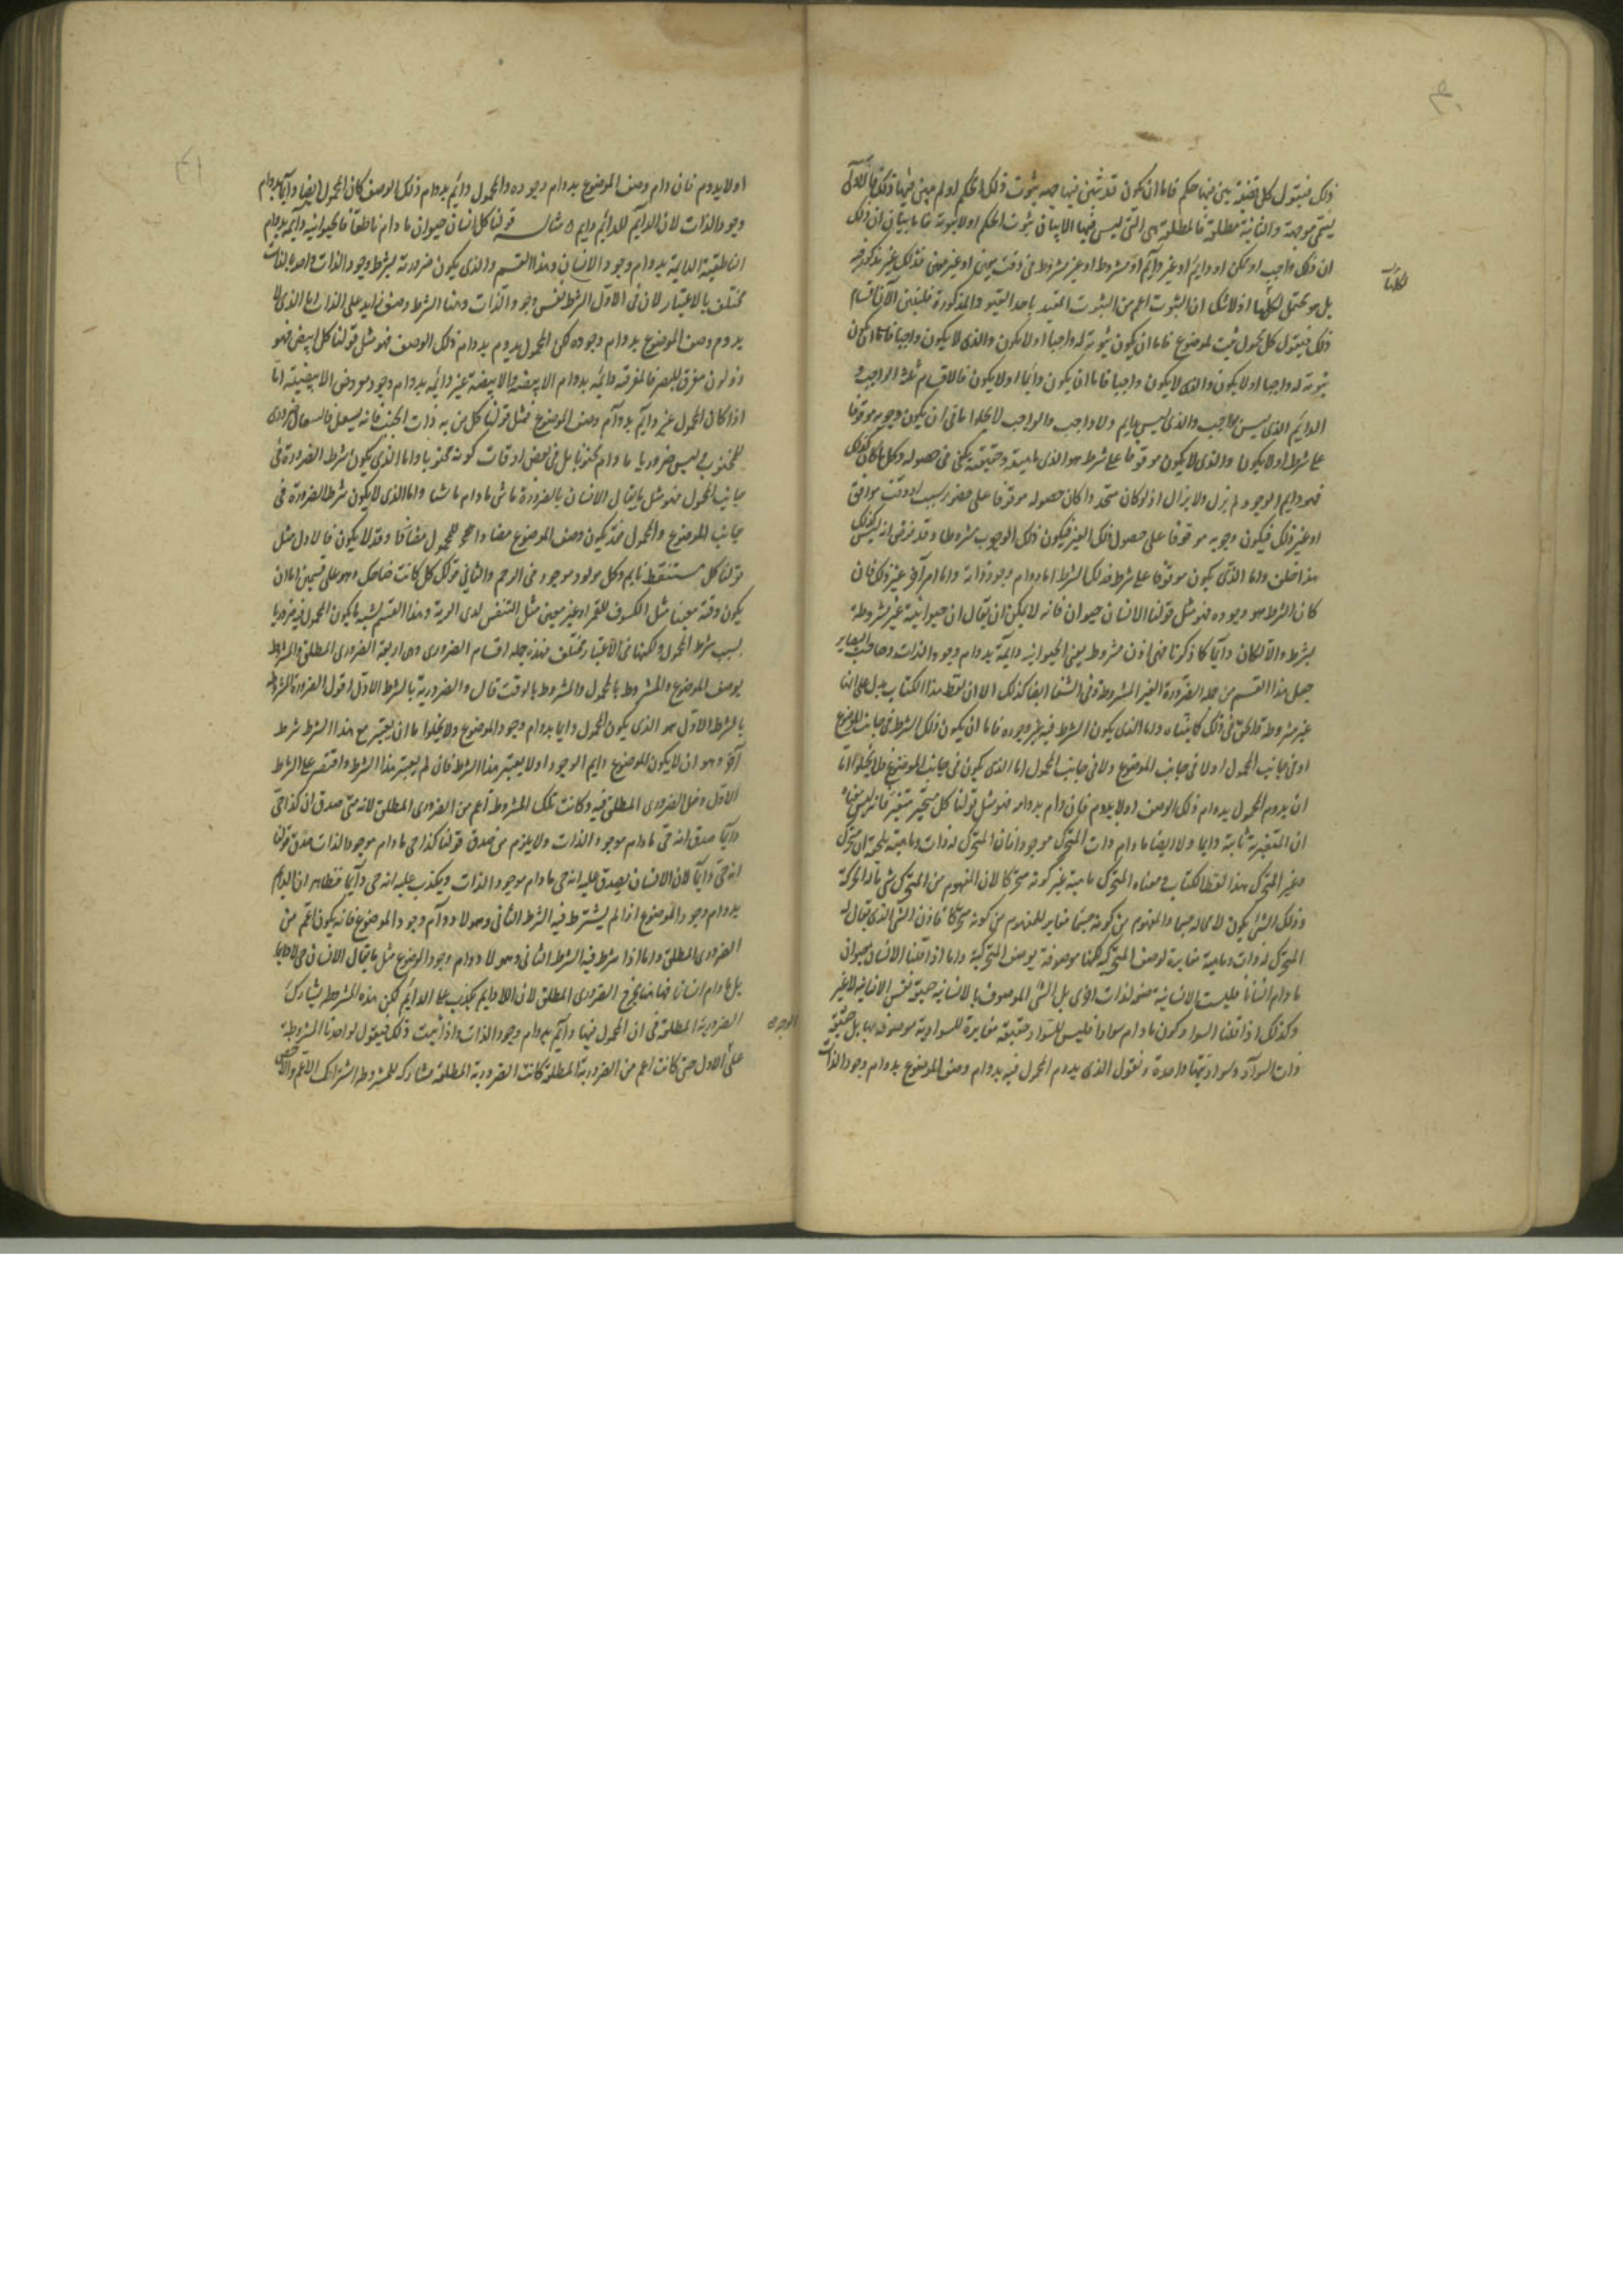 ذلك فنقول كل قضية بين فيها حكم فاما ان يكون قد بين فيها جهة ثبوت ذلك الحكم او لم يبين فيها ذلك فالاولى
يسمى موجهة والثانية مطلقة فالمطلقة هى التى ليس فيها الا بيان ثبوت الحكم او لا ثبوته فاما بيان ان ذلك
ان ذلك واجب او ممكن او دايم او غير دايم او مشروط او غير مشروط فى وقت معين او غير معين فذلك غير مذكور فيه
بل هو محتمل لكلها اذ لا شك ان الثبوت اعم من الثبوت المقيد باحد القيود المذكورة فلنبين الآن اقسام
لكلها
ذلك فنقول كل محمول يثبت لموضوع فاما ان يكون ثبوته له واجبا او لا يكون والذى لا يكون واجبا فاما ان يكون
ثبوته له واجبا او لا يكون والذى لا يكون واجبا فاما ان يكون دايما او لا يكون فالاقسام ثلثة الواجب و
الدايم الذى ليس بواجب والذى ليس بدايم ولا واجب والواجب لا يخلوا اما ان يكون وجوبه موقوفا
على شرط او لا يكون والذى لا يكون موقوفا على شرط هو الذى ماهيته وحقيقته يكفى فى حصوله وكل ما كان كذلك
فهو دايم الوجود لم يزل ولا يزال اذ لو كان متجددا كان حصوله موقوفا على حضور سبب او وقت موافق
او غير ذلك فيكون وجوبه موقوفا على حصول ذلك الغير فيكون ذلك الوجوب مشروطا وقد فرض انه ليس كذلك
هذا خلف واما الذى يكون موقوفا على شرط فذلك الشرط اما دوام وجود ذاته واما امر آخر غير ذلك فان
كان الشرط هو وجوده فهو مثل قولنا الانسان حيوان فانه لا يمكن ان يقال ان حيوانيته غير مشروطة
بشرط والا لكان دايما كما ذكرنا فهى اذن مشروط يعنى الحيوانية دايمة بدوام وجود الذات وصاحب البصاير
جعل هذا القسم من جملة الضرورة الغير المشروطة وفى الشفا ايضا كذلك الا ان لفظ هذا الكتاب يدل على انها
غير مشروطة والحق فى ذلك ما بيناه واما الذى يكون الشرط فيه غير وجوده فاما ان يكون ذلك الشرط فى جانب الموضوع
او فى جانب المحمول او لا فى جانب الموضوع ولا فى جانب المحمول اما الذى يكون فى جانب الموضوع فلا يخلوا اما
ان يدوم المحمول بدوام ذلك الوصف او لا يدوم فان دام بدوامه فهو مثل قولنا كل متحرك متغير فانه ليس معناه
ان المتغيرية ثابتة دايما ولا ايضا ما دام ذات المتحرك موجودا فان المتحرك له ذات وماهية يلحقه ان متحرك
وغير المتحرك بهذا لفظ الكتاب ومعناه المتحرك ماهية غير كونه متحركا لان المفهوم من المتحرك شى ما له الحركة
وذلك الشى يكون لا محالة جسما والمفهوم من كونه جسما مغاير للمفهوم من كونه متحركا فاذن الشى الذى يقال له
المتحرك له ذات وماهية مغايرة لوصف المتحركية لكنها موصوفة بوصف المتحركية واما اذا قلنا الانسان حيوان
ما دام انسانا فليست الانسانية صفة لذات اخرى بل الشى الموصوف بالانسانية حقيقة نفس الانسانية لا غير
وكذلك اذا قلنا السواد كون ما دام سوادا فليس للسواد حقيقة مغايرة للسوادية موصوفة بها بل حقيقة
ذات السواد وسواديتها واحدة ونقول الذى يدوم المحمول فيه بدوام وصف الموضوع بدوام وجود الذات
او لا يدوم فان دام وصف الموضوع بدوام وجوده والمحمول دايم بدوام ذلك الوصف كان المحمول ايضا دايما بدوام
وجود الذات لان الدايم للدايم دايم مثاله قولنا كل انسان حيوان ما دام ناطقا فالحيوانية دايمة بدوام
الناطقية الدايمة بدوام وجود الانسان وهذا القسم والذى يكون ضرورته بشرط وجود الذات واحد بالذات
مختلف بالاعتبار لان فى الاول الشرط نفس وجود الذات وهنا الشرط وصف زايد على الذات اما الذى لا
يدوم وصف الموضوع بدوام وجوده لكن المحمول يدوم بدوام ذلك الوصف فهو مثل قولنا كل ابيض فهو
ذو لون مفرق للبصر فالمفرقية دايمة بدوام الابيضية والابيضية غير دايمة بدوام وجود معروض الابيضية اما
اذا كان المحمول غير دايم بدوام وصف الموضوع فمثل قولنا كل من به ذات الجنب فانه يسعل فالسعال ضرورى
للمجنوب وليس ضروريا ما دام مجنوبا بل فى بعض اوقات كونه مجنوبا واما الذى يكون شرط الضرورة فى
جانب المحمول فهو مثل ما يقال الانسان بالضرورة ماشى ما دام ماشيا واما الذى لا يكون شرط الضرورة فى
جانب الموضوع والمحمول فقد يكون وصف الموضوع مضادا للمحمول منافيا وقد لا يكون فالاول مثل
قولنا كل مستيقظ نايم وكل مولود موجود فى الرحم والثانى قولك كل كاتب ضاحك وهو على قسمين اما ان
يكون وقته معينا مثل الكسوف للقمر او غير معين مثل التنفس لذى الرية وهذا القسم يشبه ما يكون المحمول فيه ضروريا
بسبب شرط المحمول ولكنهما فى الاعتبار مختلف فهذه جملة اقسام الضرورى وهى اربعة الضرورى المطلق والمشروط
بوصف الموضوع والمشروط بالمحمول والمشروط بالوقت قال والضرورية بالشرط الاول اقول الضرورة المشروطة
بالشرط الاول هو الذى يكون المحمول دايما بدوام وجود الموضوع ولا يخلوا اما ان يعتبر مع هذا الشرط شرط
آخر وهو ان لا يكون الموضوع دايم الوجود او لا يعتبر هذا الشرط فان لم يعتبر هذا الشرط واقتصر على الشرط
الاول دخل الضرورى المطلق فيه وكانت تلك المشروطة اعم من الضرورى المطلق لانه متى صدق ان كذا حى
دايما صدق انه حى ما دام موجود الذات ولا يلزم من صدق قولنا كذا حى ما دام موجود الذات صدق قولنا
انه حى دايما لان الانسان يصدق عليه انه حى ما دام موجود الذات ويكذب عليه انه حى دايما فظاهر ان الدايم
بدوام وجود الموضوع اذا لم يشترط فيه الشرط الثانى وهو لا دوام وجود الموضوع فانه يكون اعم من
الضرورى المطلق واما اذا شرط فيه الشرط الثانى وهو لا دوام وجود الموضوع مثل ما يقال الانسان حى لا دايما
بل ما دام انسانا فهاهنا يخرج الضرورى المطلق لان اللا دايم يكذب على الدايم لكن هذه المشروطة يشارك
الضرورية المطلقة فى ان المحمول فيها دايم بدوام وجود الذات واذا ثبت ذلك فنقول لو اخذنا المشروطة
الوجوه
على الاول حتى كانت اعم من الضرورية المطلقة كانت الضرورية المطلقة مشاركة للمشروطة اشتراك الاعم والاخص